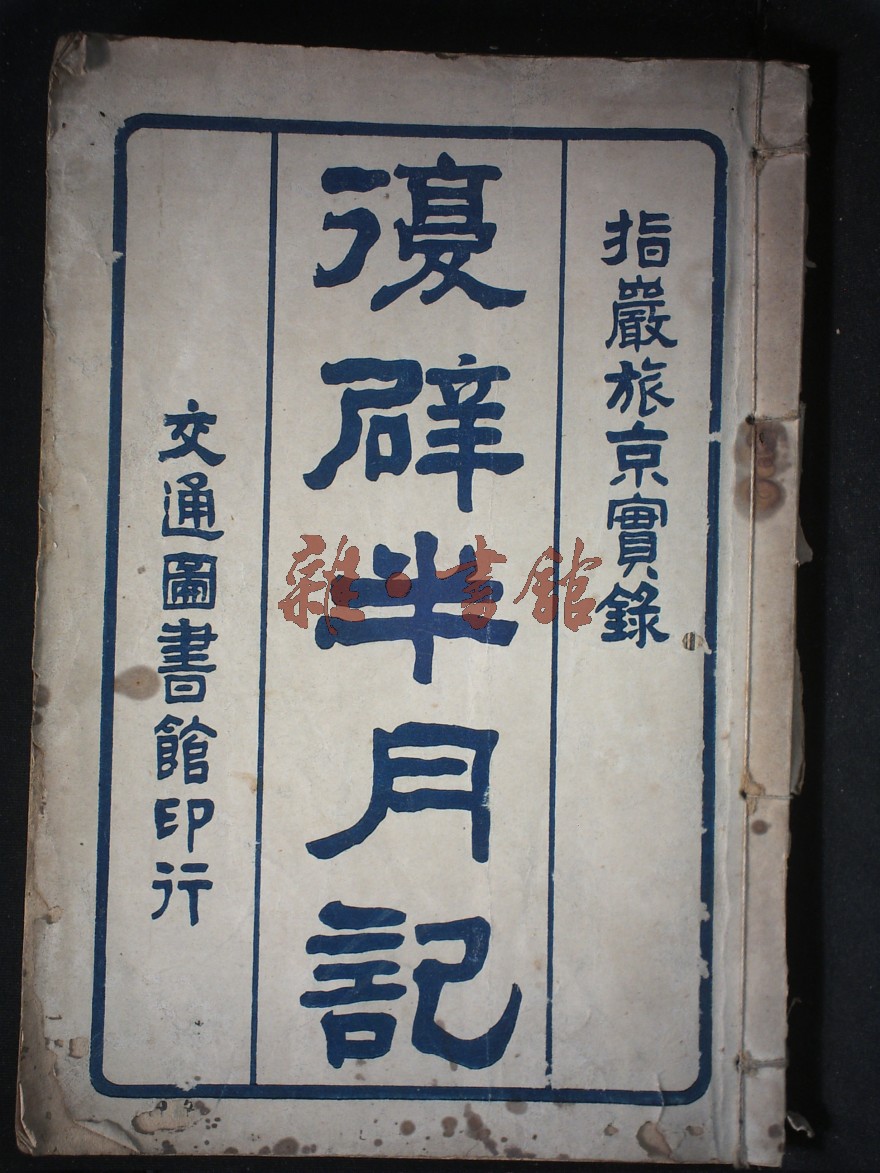 指嚴旅京實錄
復辟半月記
交通圖書館印行
雜·書館